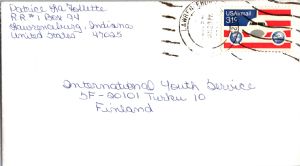 Patrice LaFollette
R.R#1 Box 94
Lawrenceburg, Indiana
United States 47025
USAirmail
31c
International Youth Service
SF-20101 Turku 10
Finland